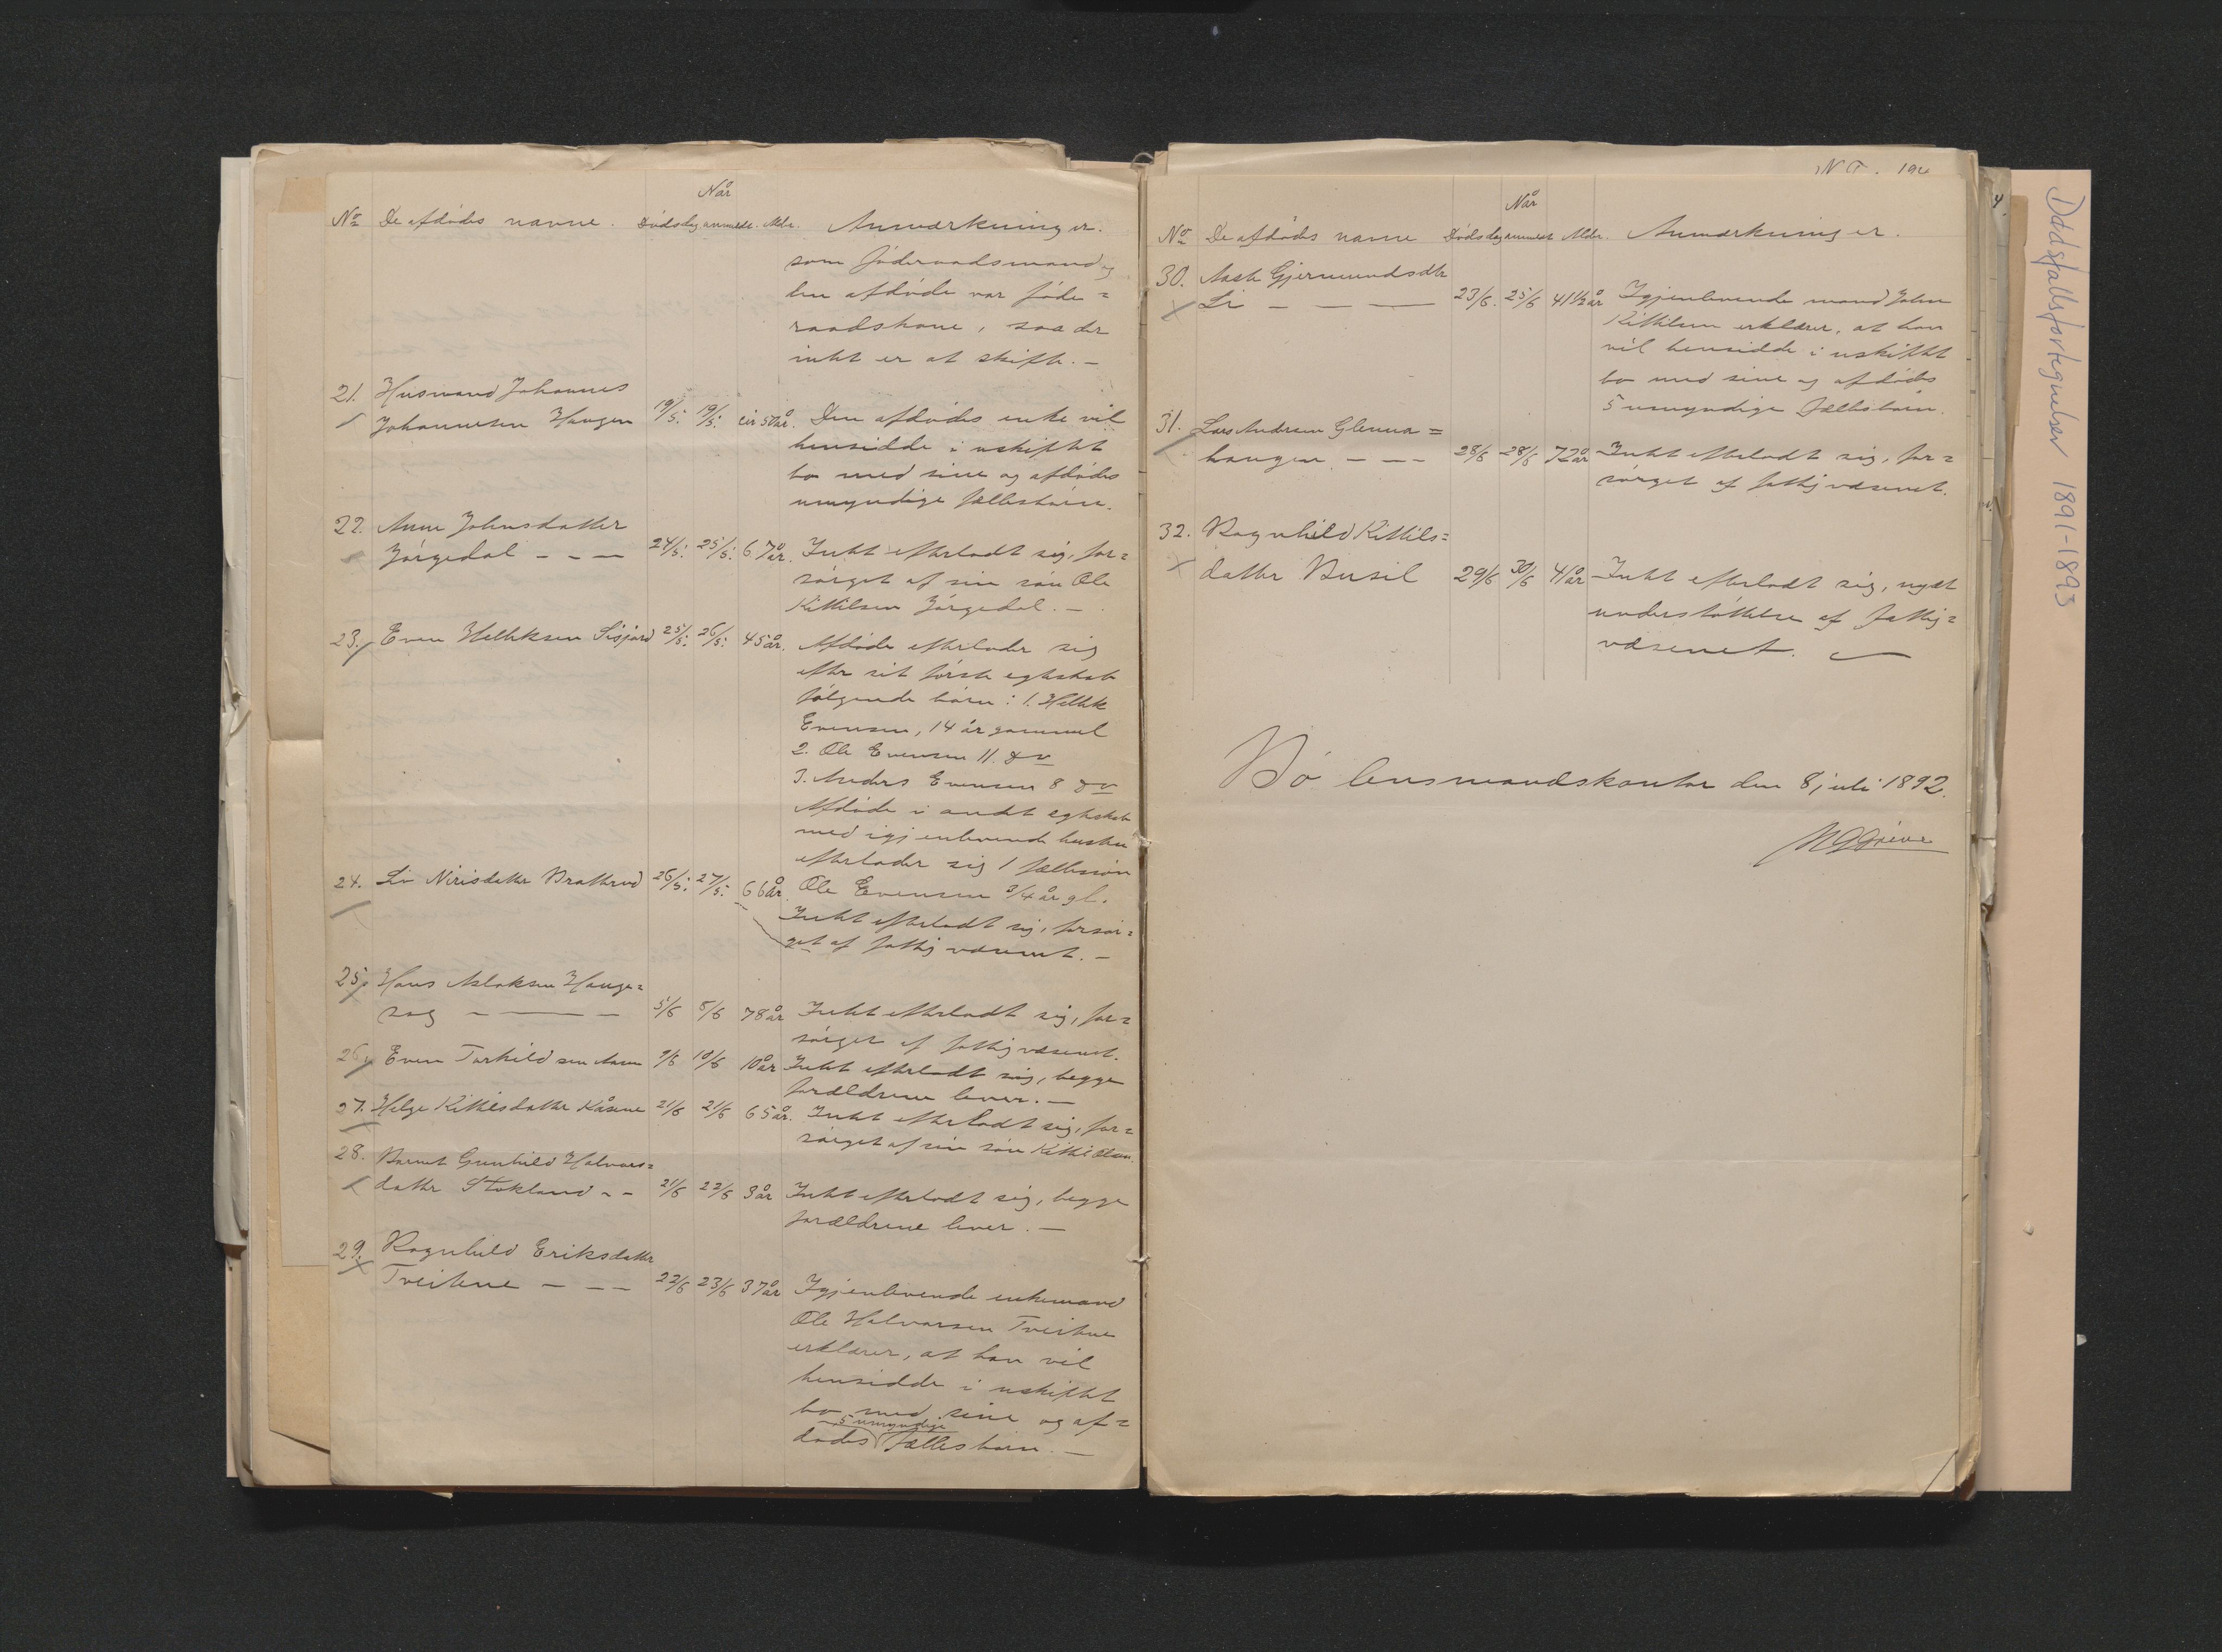 Når
No De afdødes navne. Dødsdag anmeldt. Alder. Anmærkninger.
som föderaadsmand og
den afdøde var föde=
raadskone, saa der
intet er at skifte. —
21. Husmand Johannes
Johannesen Haugen 19/5. 19/5. cir 50 år. Den afdødes enke vil
hensidde i uskiftet
bo med sine og afdødes
umyndige fællesbörn.
22. Anne Johnsdatter
Jörgedal - - - 24/5. 25/5. 67 år. Intet efterladt sig, for=
sörget af sin sön Ole
Kittilsen Jörgedal. —
23. Even Helleksen Sisjord 25/5. 26/5. 45 år. Afdøde efterlader sig
efter sit förste egteskab
fölgende börn: 1. Hellek
Evensen, 14 år gammel
2. Ole Evensen 11. do
3. Anders Evensen 8 do
Afdøde i andet egteskab
med igjenlevende hustru
efterlader sig 1 fællessön
Ole Evensen 3/4 år gl.
24. Liv Nirisdatter Bratterud 26/5. 27/5. 66 år. Intet efterladt sig, forsör=
get af fattigvæsenet. —
25. Hans Aslaksen Hauge=
sag - — — 5/6 8/6 78 år Intet efterladt sig, for=
sörget af fattigvæsenet.
26. Even Torkildsen Aasen 9/6 10/6 10 år Intet efterladt sig, begge
forældrene lever. —
27. Helge Kittilsdatter Kåsene 21/6 21/6 65 år. Intet efterladt sig, for=
sörget af sin sön Kittil Olsen.
28. Barnet Gunhild Halvors=
datter Stokland - - 21/6 22/6 3 år Intet efterladt sig, begge
forældrene lever. —
29. Ragnhild Eriksdatter
Tveitene - - - 22/6 23/6 37 år Igjenlevende enkemand
Ole Halvorsen Tveitene
erklærer, at han vil
hensidde i uskiftet
bo med sine og af=
5 umyndige
dødes fællesbörn. —
Når
No De afdødes navne Dødsdag anmeldt Alder. Anmærkninger.
30. Aaste Gjermundsdtr
Li - — — 23/6. 25/6 41 1/2 år Igjenlevende mand John
Kittilsen erklærer, at han
vil hensidde i uskiftet
bo med sine og afdødes
5 umyndige fællesbörn.
31. Lars Andersen Glenna=
haugen. - - - 28/6 28/6 72 år Intet efterladt sig, for=
sörget af fattigvæsenet.
32. Ragnhild Kittils=
datter Busil 29/6 30/6 41 år Intet efterladt sig, nydt
understöttelse af fattig=
væsenet. —
Bö lensmandskontor den 8 juli 1892.
Dødsfallsfortegnelser 1891-1893